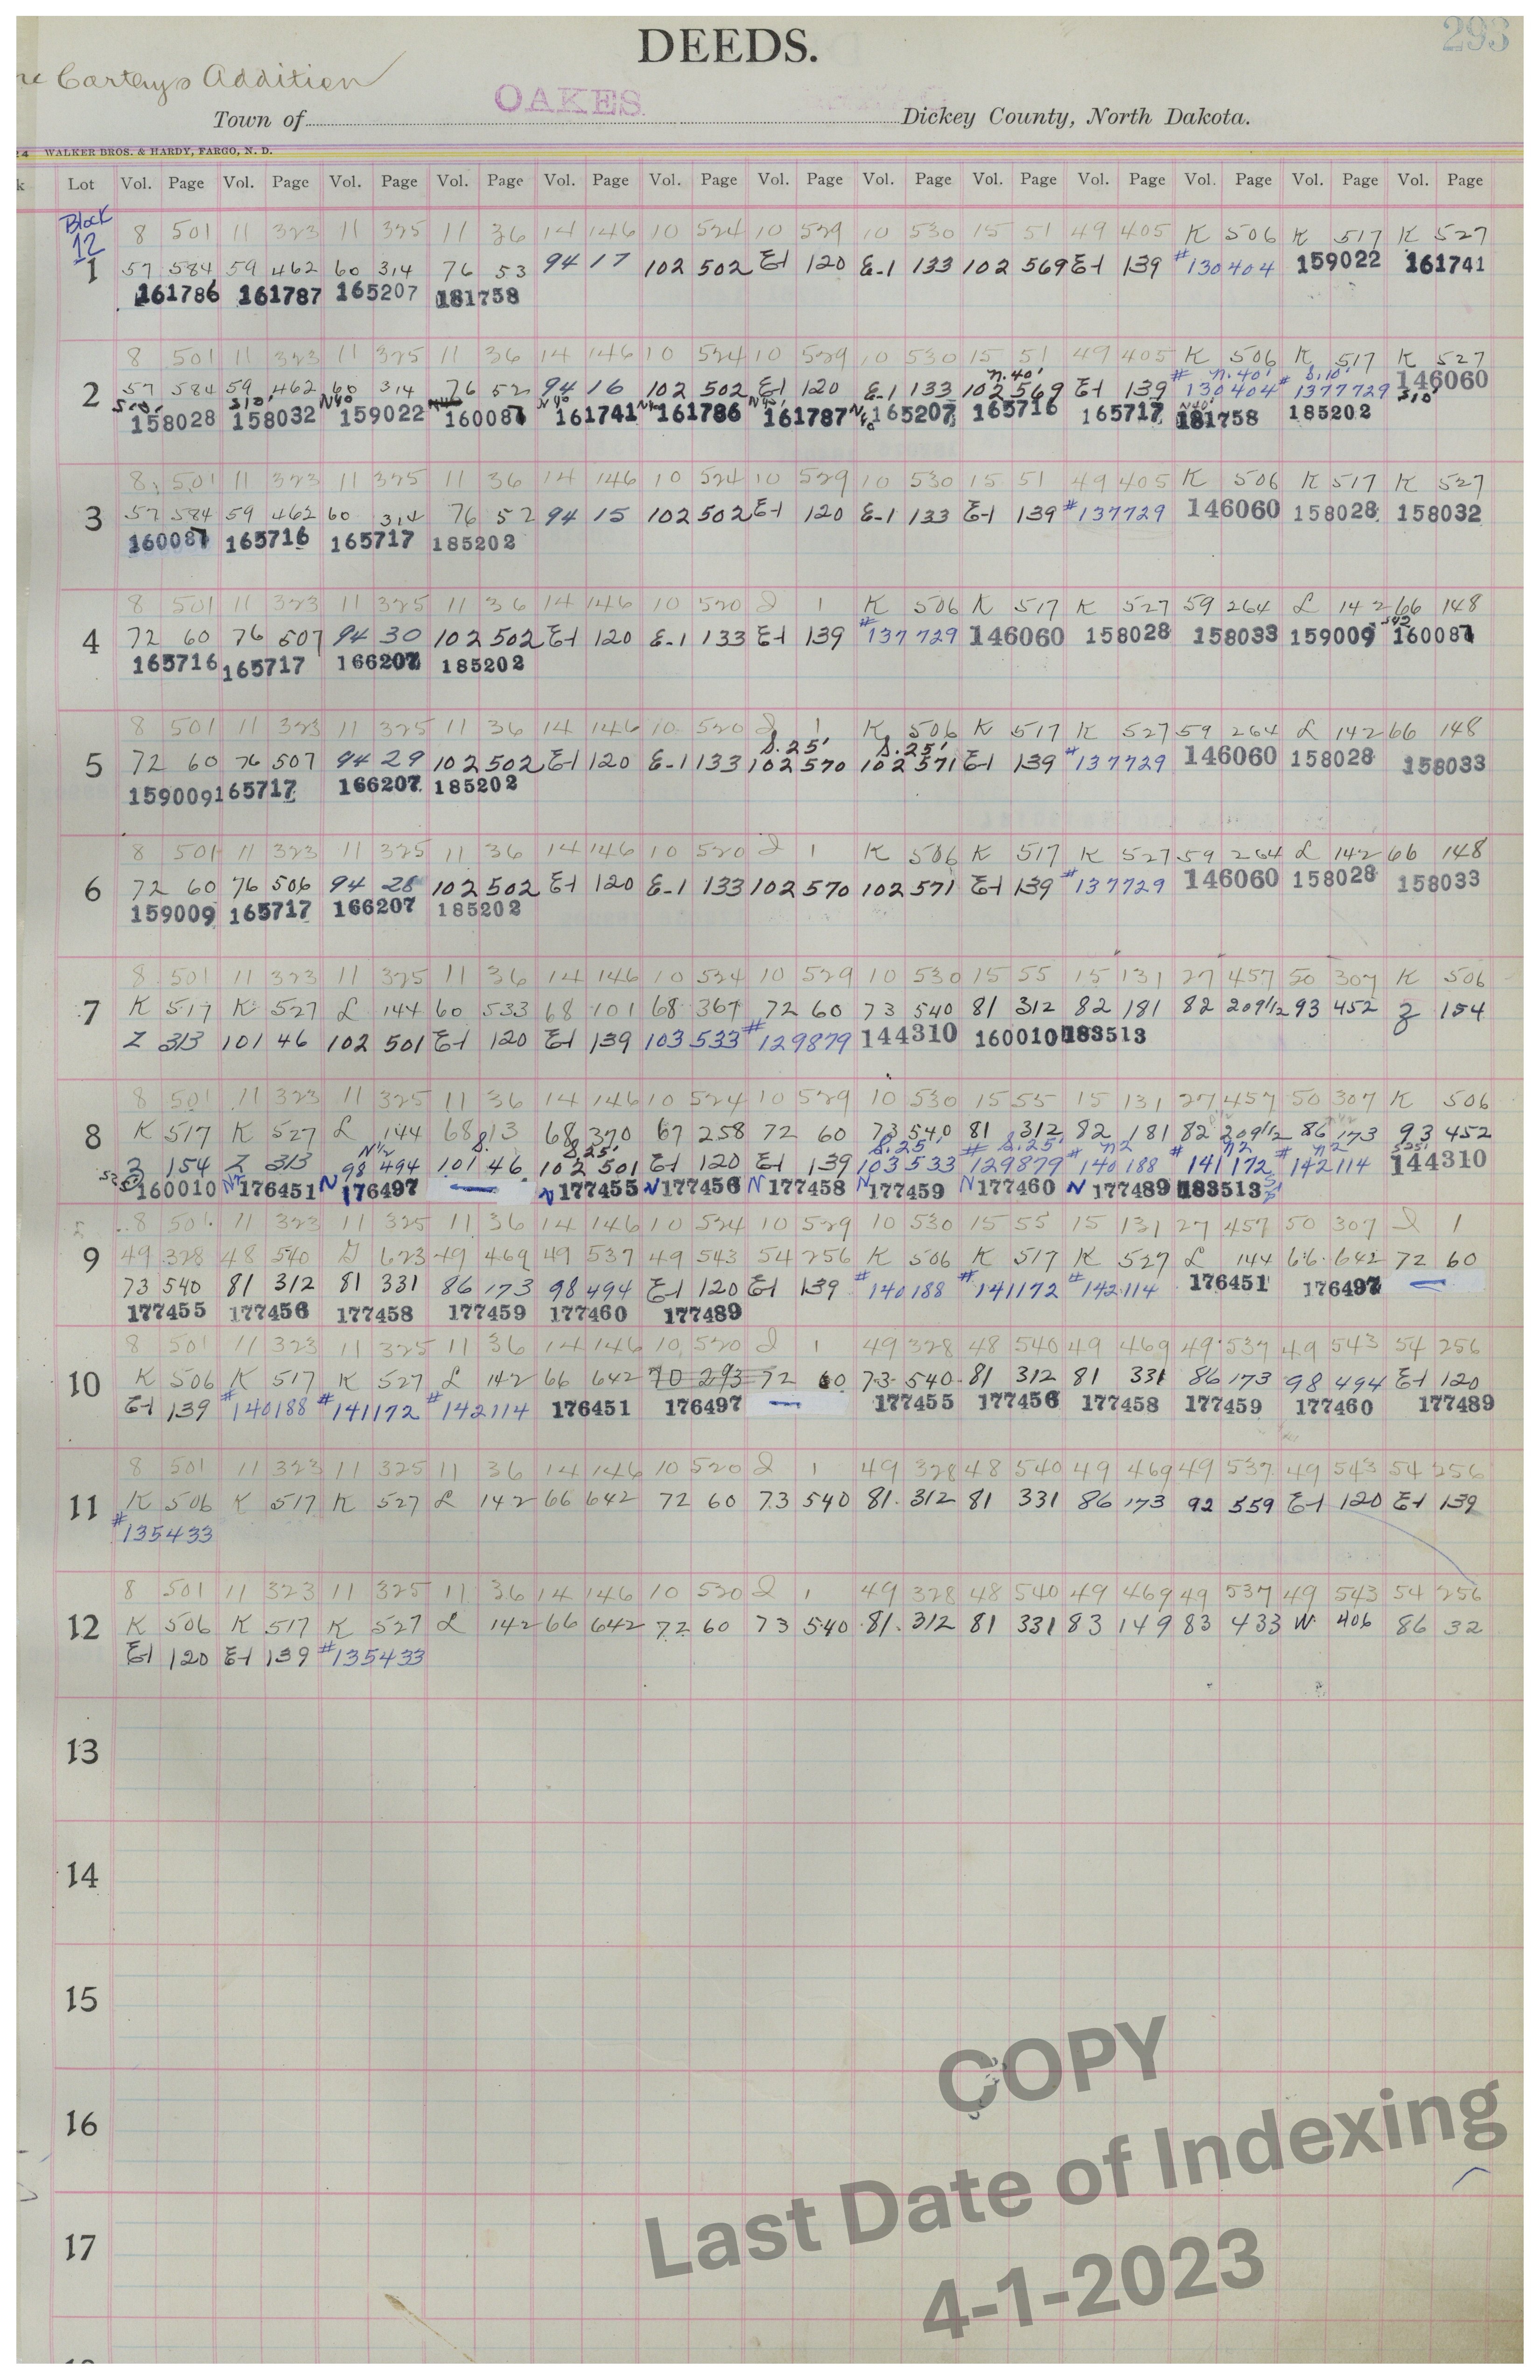 293
DEEDS.
Carteys Addition
OAKES
Town of Dickey County, North Dakota.
24 WALKER BROS. & HARDY, FARGO, N. D.
k Lot Vol. Page Vol. Page Vol. Page Vol. Page Vol. Page Vol. Page Vol. Page Vol. Page Vol. Page Vol. Page Vol. Page Vol. Page Vol. Page
Block
12
8 501 11 323 11 325 11 36 14 146 10 524 10 529 10 530 15 51 49 405 K 506 K 517 K 527
1 57 584 59 462 60 314 76 53 94 17 102 502 E-1 120 E-1 133 102 569 E-1 139 #130404 159022 161741
161786 161787 165207 181758
8 501 11 323 11 325 11 36 14 146 10 524 10 529 10 530 15 51 49 405 K 506 K 517 K 527
n.40' # n.40' # S.10'
2 57 584 59 462 60 314 76 52 94 16 102 502 E-1 120 E-1 133 102 569 E-1 139 130404 1377729 146060
S10' S10' N40 N40 N40 N40' N40 N40' S10'
158028 158032 159022 160087 161741 161786 161787 165207 165716 165717 181758 185202
8 501 11 323 11 325 11 36 14 146 10 524 10 529 10 530 15 51 49 405 K 506 K 517 K 527
3 57 584 59 462 60 314 76 52 94 15 102 502 E-1 120 E-1 133 E-1 139 #137729 146060 158028 158032
160087 165716 165717 185202
8 501 11 323 11 325 11 36 14 146 10 520 J 1 K 506 K 517 K 527 59 264 L 142 66 148
4 72 60 76 507 94 30 102 502 E-1 120 E-1 133 E-1 139 #137729 146060 158028 158033 159009 160087
165716 165717 166207 185202
8 501 11 323 11 325 11 36 14 146 10 520 J 1 K 506 K 517 K 527 59 264 L 142 66 148
S.25' S.25'
5 72 60 76 507 94 29 102 502 E-1 120 E-1 133 102 570 102 571 E-1 139 #137729 146060 158028 158033
159009 165717 166207 185202
8 501 11 323 11 325 11 36 14 146 10 520 J 1 K 506 K 517 K 527 59 264 L 142 66 148
6 72 60 76 506 94 28 102 502 E-1 120 E-1 133 102 570 102 571 E-1 139 #137729 146060 158028 158033
159009 165717 166207 185202
8 501 11 323 11 325 11 36 14 146 10 524 10 529 10 530 15 55 15 131 27 457 50 307 K 506
7 K 517 K 527 L 144 60 533 68 101 68 367 72 60 73 540 81 312 82 181 82 209 1/2 93 452 Z 154
Z 313 101 46 102 501 E-1 120 E-1 139 103 533 #129879 144310 160010 183513
8 501 11 323 11 325 11 36 14 146 10 524 10 529 10 530 15 55 15 131 27 457 50 307 K 506
8 K 517 K 527 L 144 68 13 68 370 67 258 72 60 73 540 81 312 82 181 82 209 1/2 86 173 93 452
N1/2 S. S.25' S.25' # S.25' # n2 # n2 # n2 S25'
Z 154 Z 313 98 494 101 46 102 501 E-1 120 E-1 139 103 533 129879 140188 141172 142114 144310
160010 176451 N 176497 — N 177455 N 177456 N 177458 N 177459 N 177460 N 177489 183513
8 501 11 323 11 325 11 36 14 146 10 524 10 529 10 530 15 55 15 131 27 457 50 307 J 1
9 49 328 48 540 623 49 469 49 537 49 543 54 256 K 506 K 517 K 527 L 144 66 642 72 60
73 540 81 312 81 331 86 173 98 494 E-1 120 E-1 139 #140188 #141172 #142114 176451 176497 —
177455 177456 177458 177459 177460 177489
8 501 11 323 11 325 11 36 14 146 10 520 J 1 49 328 48 540 49 469 49 537 49 543 54 256
10 K 506 K 517 K 527 L 142 66 642 70 293 72 60 73 540 81 312 81 331 86 173 98 494 E-1 120
E-1 139 #140188 #141172 #142114 176451 176497 — 177455 177456 177458 177459 177460 177489
8 501 11 323 11 325 11 36 14 146 10 520 J 1 49 328 48 540 49 469 49 537 49 543 54 256
11 K 506 K 517 K 527 L 142 66 642 72 60 73 540 81 312 81 331 86 173 92 559 E-1 120 E-1 139
#135433
8 501 11 323 11 325 11 36 14 146 10 520 J 1 49 328 48 540 49 469 49 537 49 543 54 256
12 K 506 K 517 K 527 L 142 66 642 72 60 73 540 81 312 81 331 83 149 83 433 W 406 86 32
E-1 120 E-1 139 #135433
13
14
15
16
17
COPY
Last Date of Indexing
4-1-2023